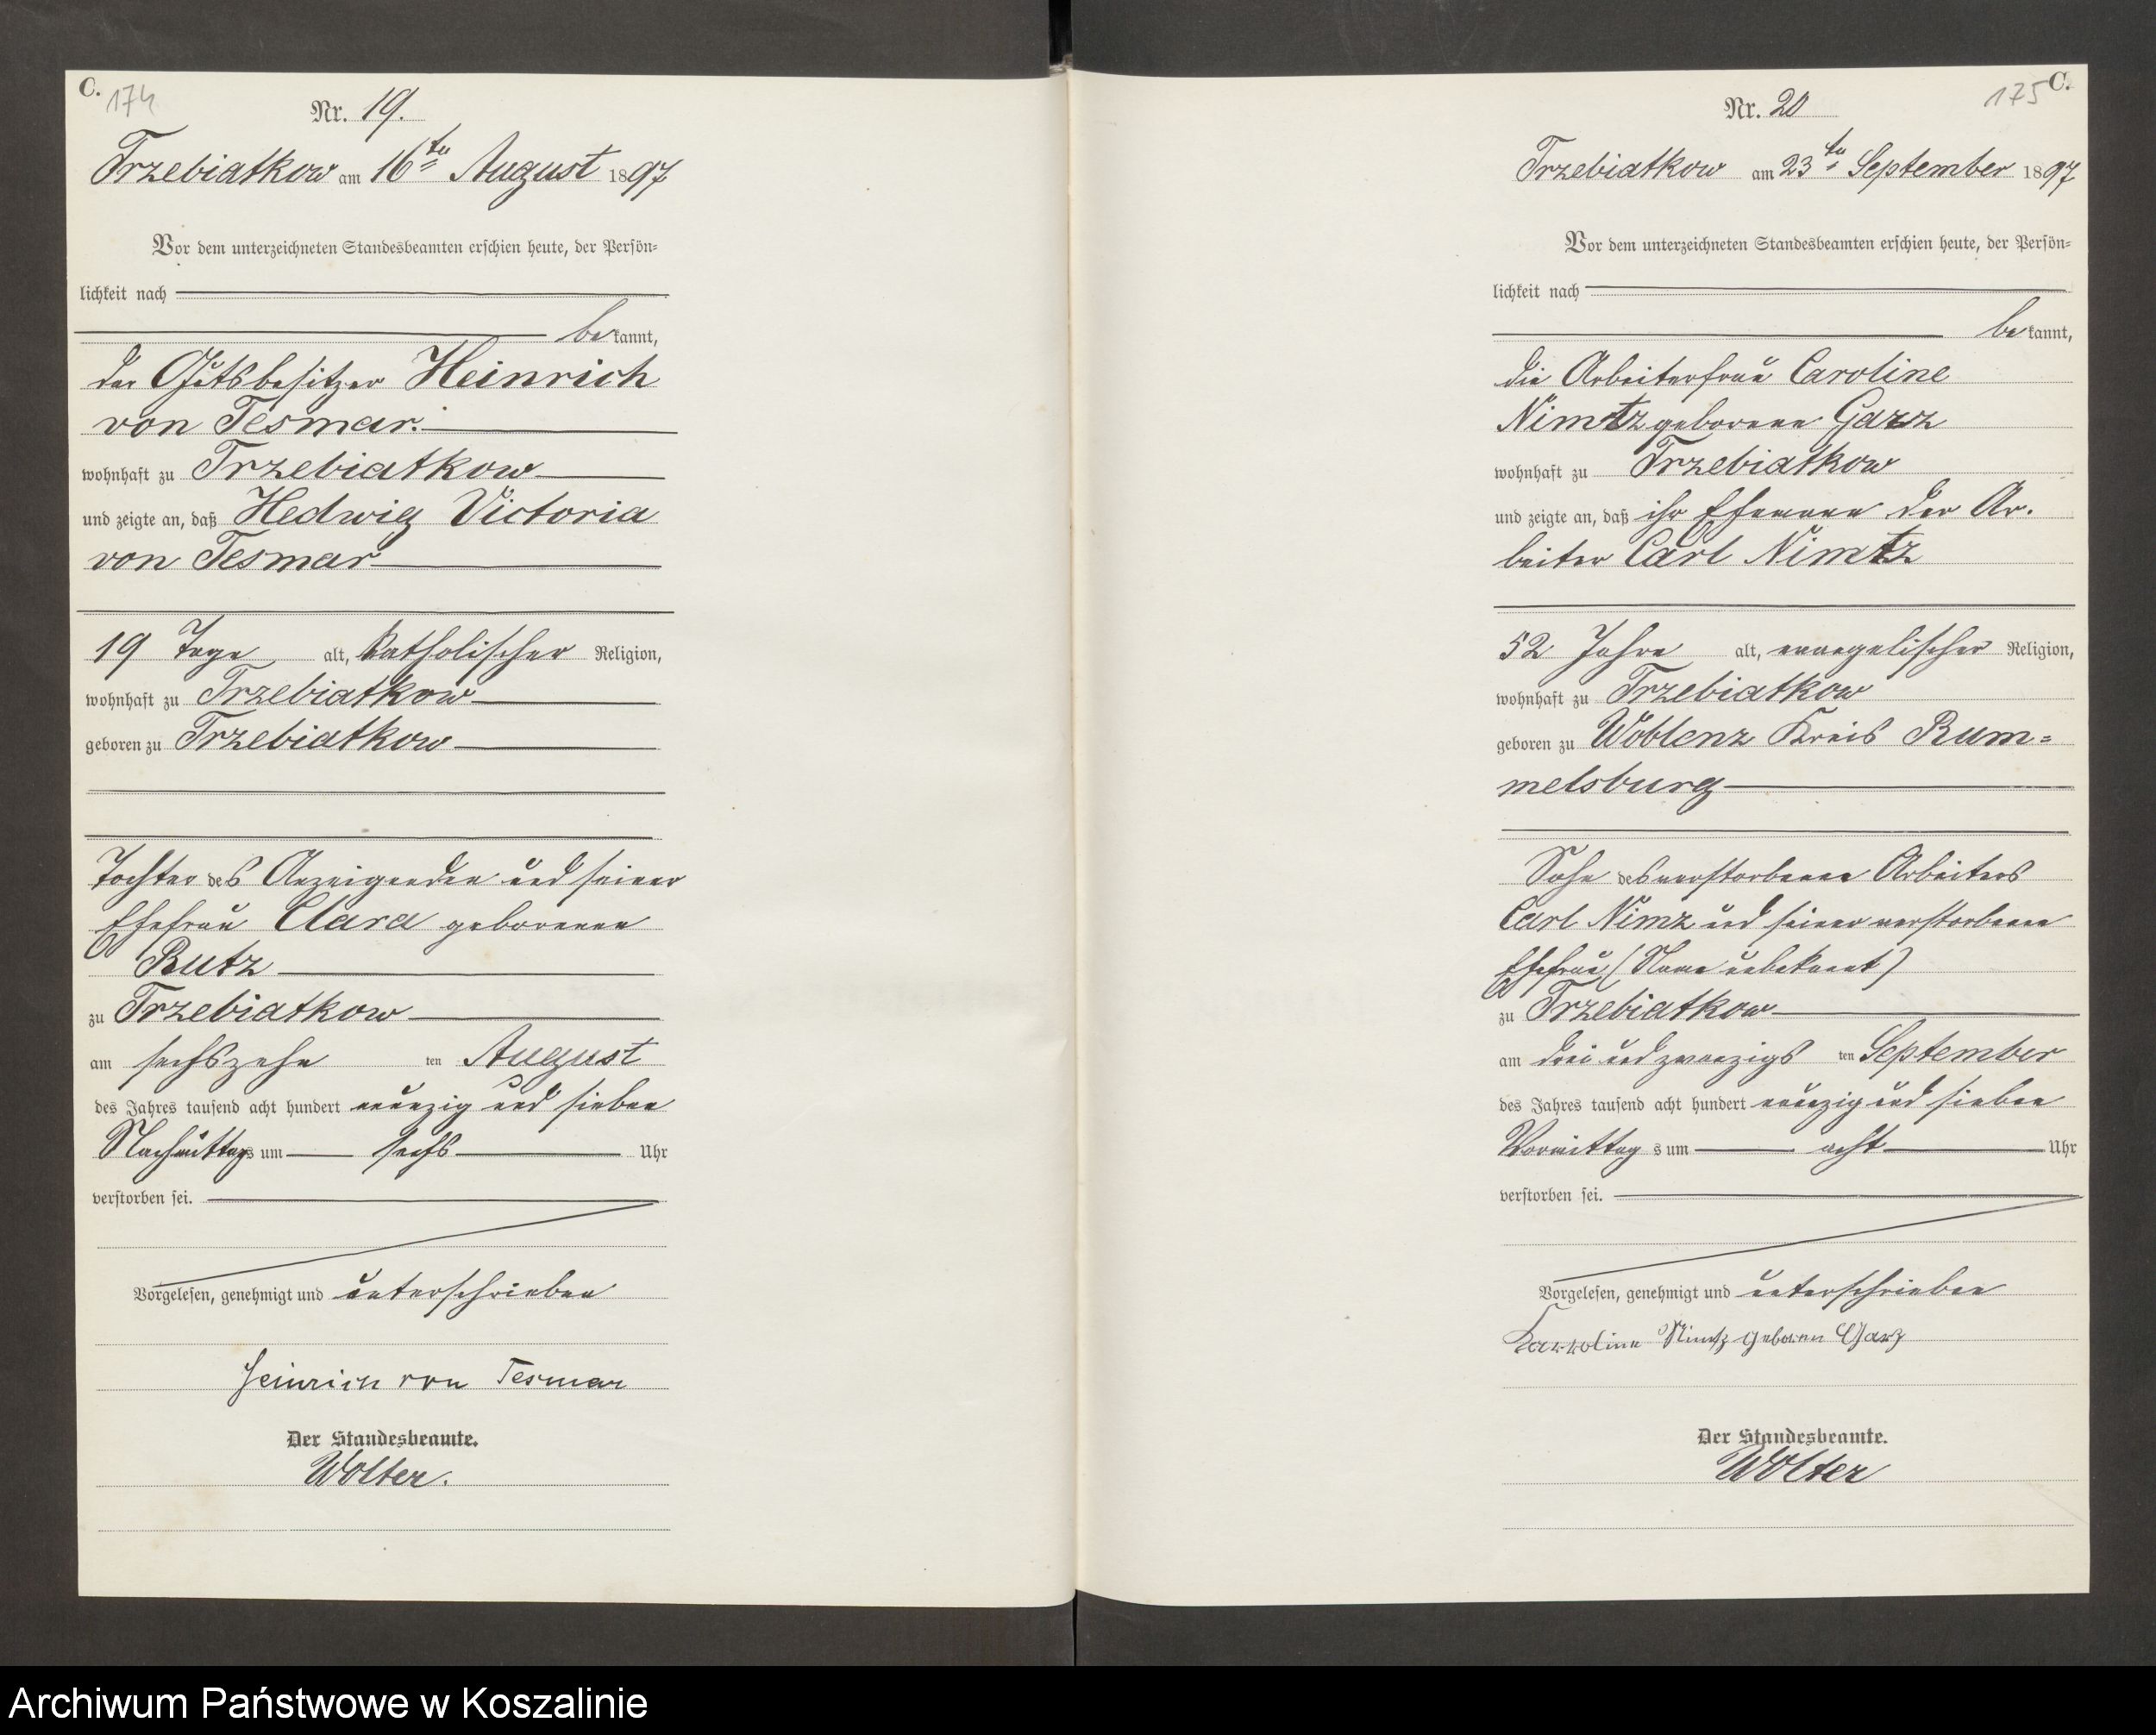 C.
174
Nr. 19.
Trzebiatkow am 16ten August 1897
Vor dem unterzeichneten Standesbeamten erschien heute, der Persön-
lichkeit nach
bekannt,
der Gutsbesitzer Heinrich
von Tesmar.
wohnhaft zu Trzebiatkow
und zeigte an, daß Hedwig Victoria
von Tesmar
19 Tage alt, katholischer Religion,
wohnhaft zu Trzebiatkow
geboren zu Trzebiatkow
Tochter des Anzeigenden und seiner
Ehefrau Clara geborenen
Rutz
zu Trzebiatkow
am sechszehn ten August
des Jahres tausend acht hundert neunzig und sieben
Nachmittags um sechs Uhr
verstorben sei.
Vorgelesen, genehmigt und unterschrieben
Heinrich von Tesmar
Der Standesbeamte.
Wolter.
175
C.
Nr. 20
Trzebiatkow am 23ten September 1897
Vor dem unterzeichneten Standesbeamten erschien heute, der Persön-
lichkeit nach
bekannt,
die Arbeiterfrau Caroline
Nimtz geborene Garz
wohnhaft zu Trzebiatkow
und zeigte an, daß ihr Ehemann der Ar-
beiter Carl Nimtz
52 Jahre alt, evangelischer Religion,
wohnhaft zu Trzebiatkow
geboren zu Woblenz Kreis Rum-
melsburg
Sohn des verstorbenen Arbeiters
Carl Nimz und seiner verstorbenen
Ehefrau (Name unbekannt)
zu Trzebiatkow
am drei und zwanzigs ten September
des Jahres tausend acht hundert neunzig und sieben
Vormittags um acht Uhr
verstorben sei.
Vorgelesen, genehmigt und unterschrieben
Karroline Nimtz geboren Garz
Der Standesbeamte.
Wolter
Archiwum Państwowe w Koszalinie